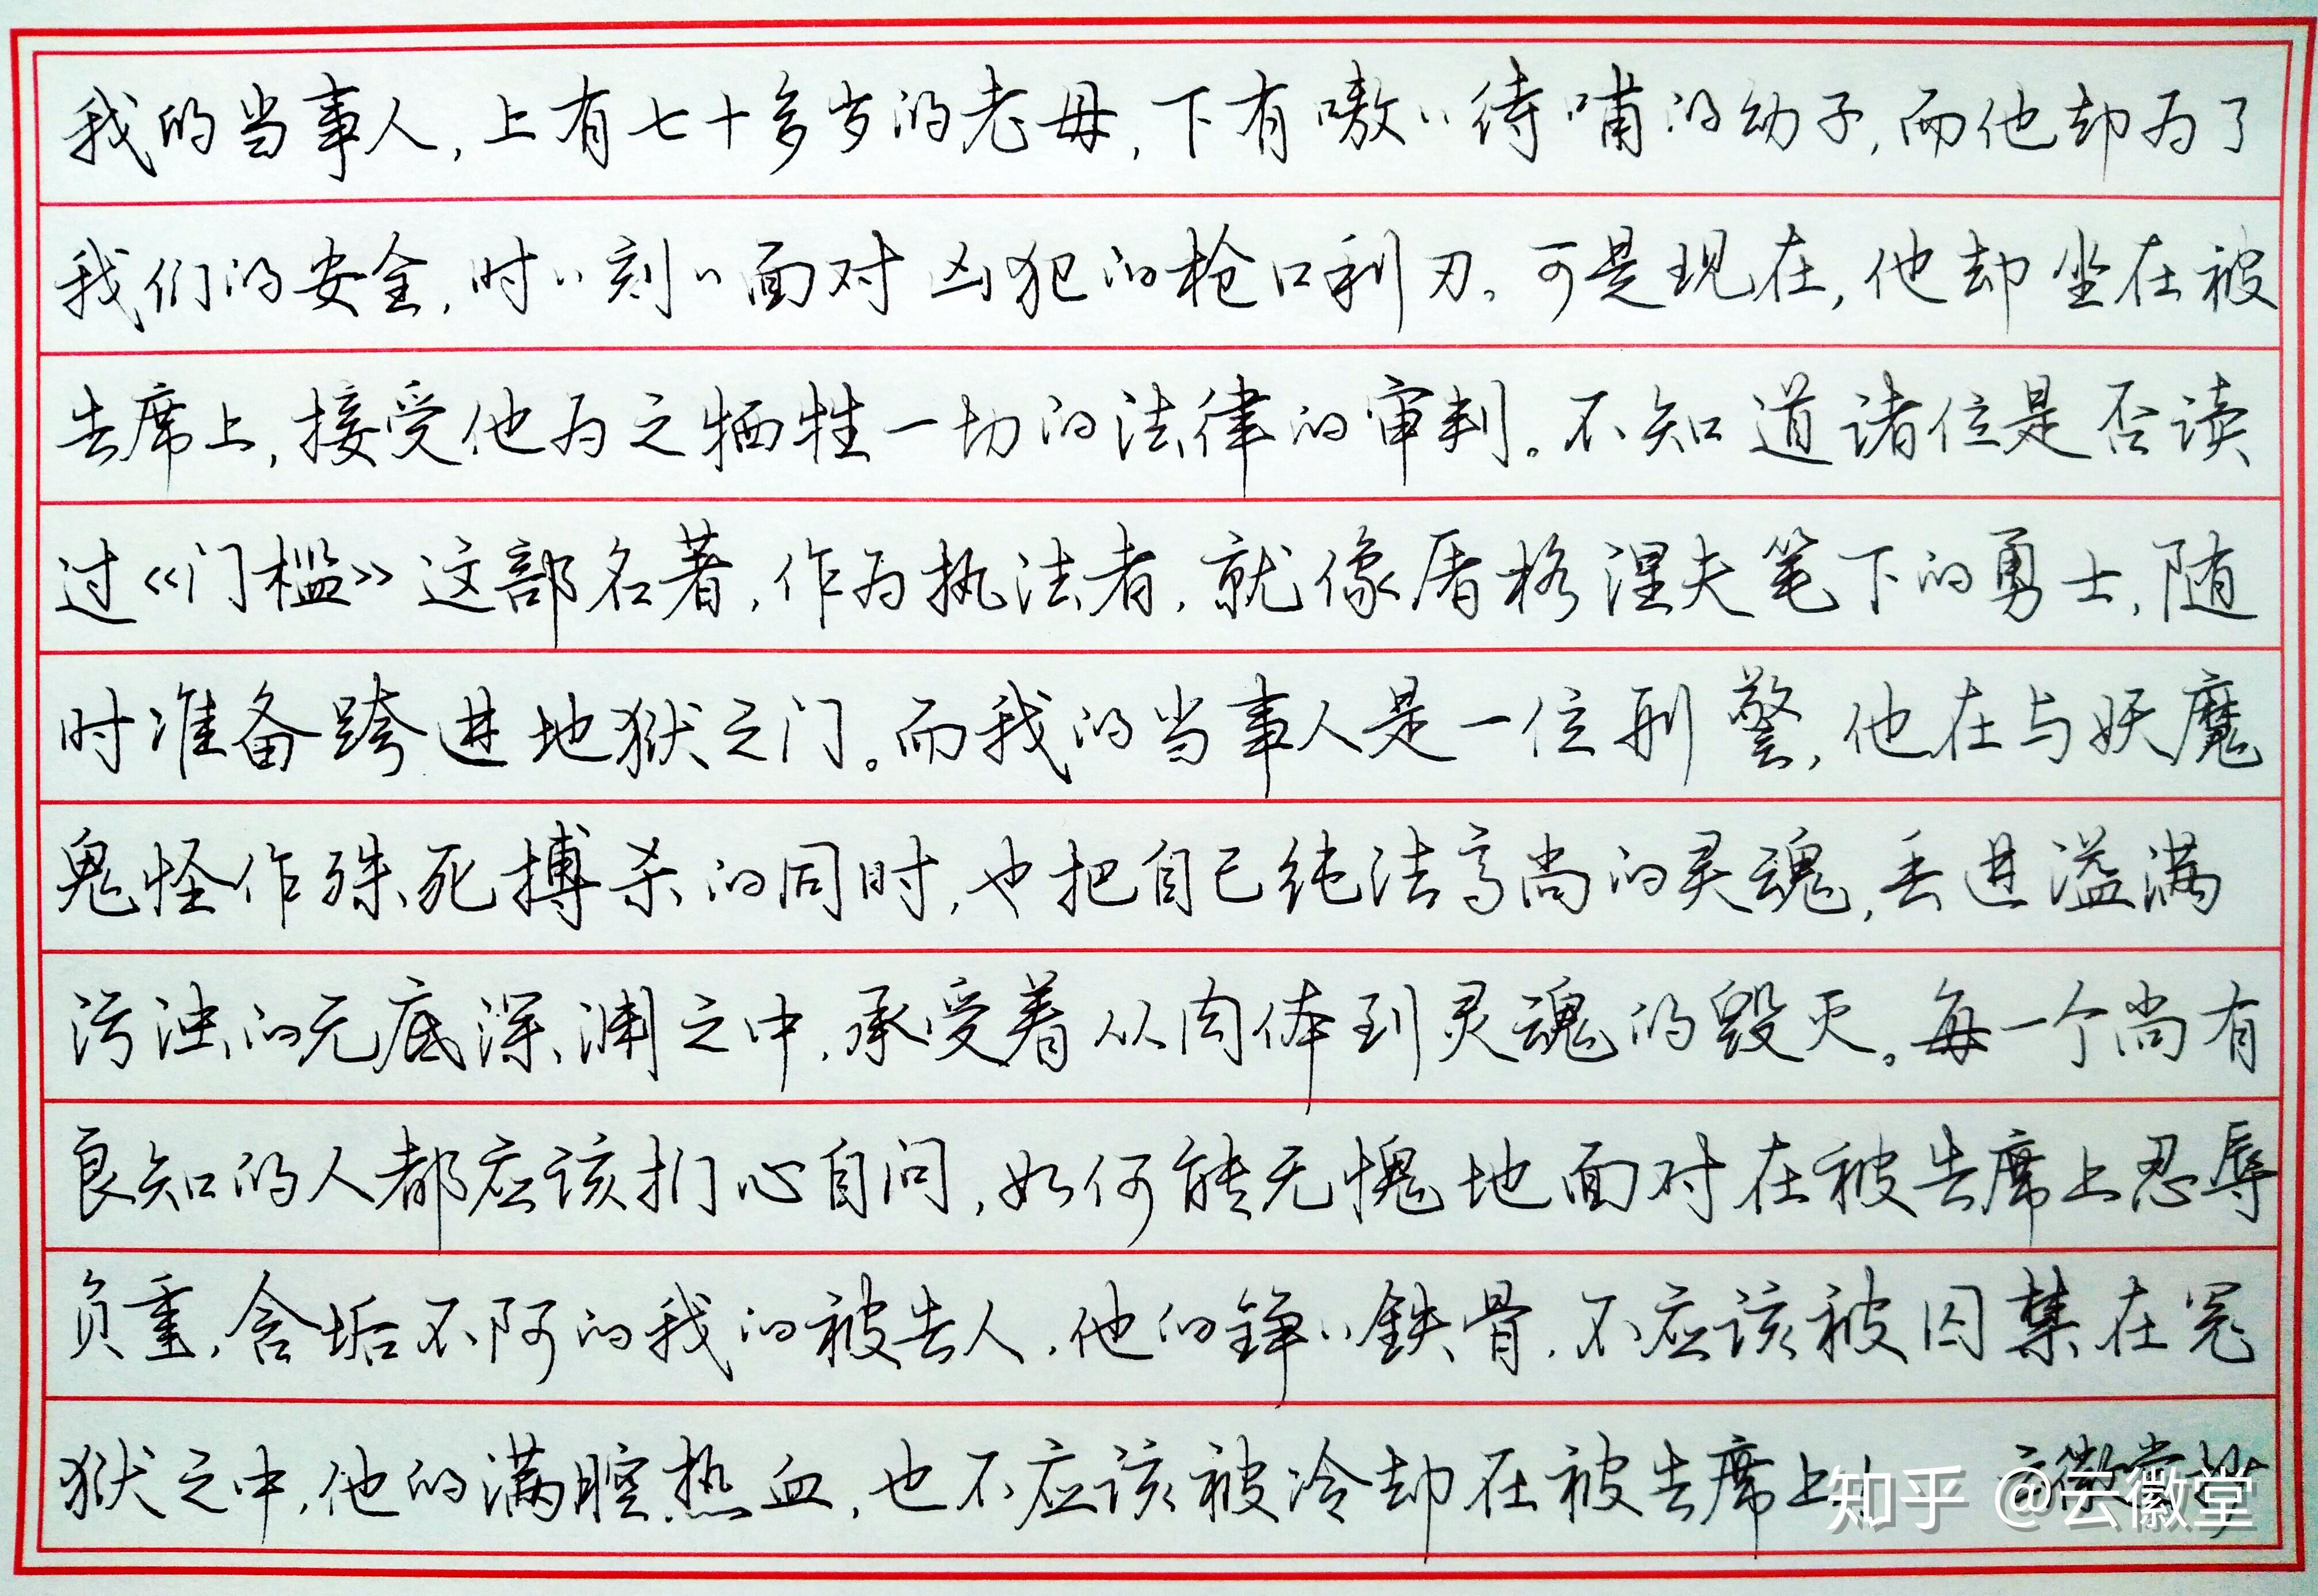 我的当事人,上有七十多岁的老母,下有嗷〃待哺的幼子,而他却为了
我们的安全,时〃刻〃面对凶犯的枪口利刃。可是现在,他却坐在被
告席上,接受他为之牺牲一切的法律的审判。不知道诸位是否读
过《门槛》这部名著,作为执法者,就像屠格涅夫笔下的勇士,随
时准备跨进地狱之门。而我的当事人是一位刑警,他在与妖魔
鬼怪作殊死搏杀的同时,也把自己纯洁高尚的灵魂,丢进溢满
污浊的无底深渊之中,承受着从肉体到灵魂的毁灭。每一个尚有
良知的人都应该扪心自问,如何能无愧地面对在被告席上忍辱
负重,含垢不阿的我的被告人,他的铮〃铁骨,不应该被囚禁在冤
狱之中,他的满腔热血,也不应该被冷却在被告席上 云徽堂抄
知乎 @云徽堂